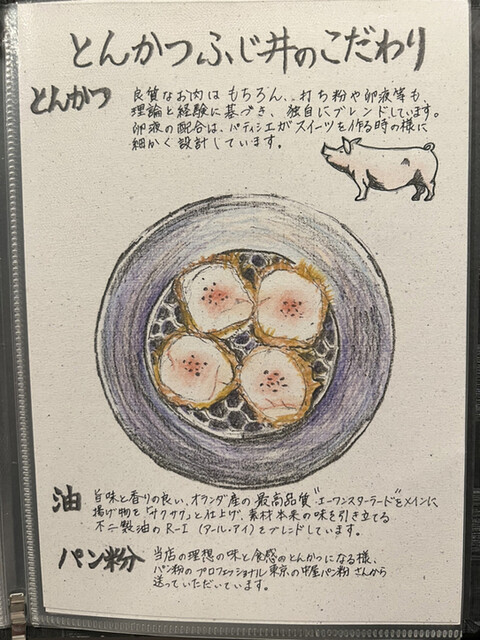 とんかつふじ井のこだわり
とんかつ
良質なお肉はもちろん、打ち粉や卵液等も、
理論と経験に基づき、独自にブレンドしています。
卵液の配合は、パティシエがスイーツを作る時の様に
細かく設計しています。
油
旨味と香りの良い、オランダ産の最高品質"エーワンスターラード"をメインに
揚げ物を「サクサク」と仕上げ、素材本来の味を引き立てる
不二製油のR-I(アール・アイ)をブレンドしています。
パン粉
当店の理想の味と食感のとんかつになる様、
パン粉のプロフェッショナル東京の中屋パン粉さんから
送っていただいています。